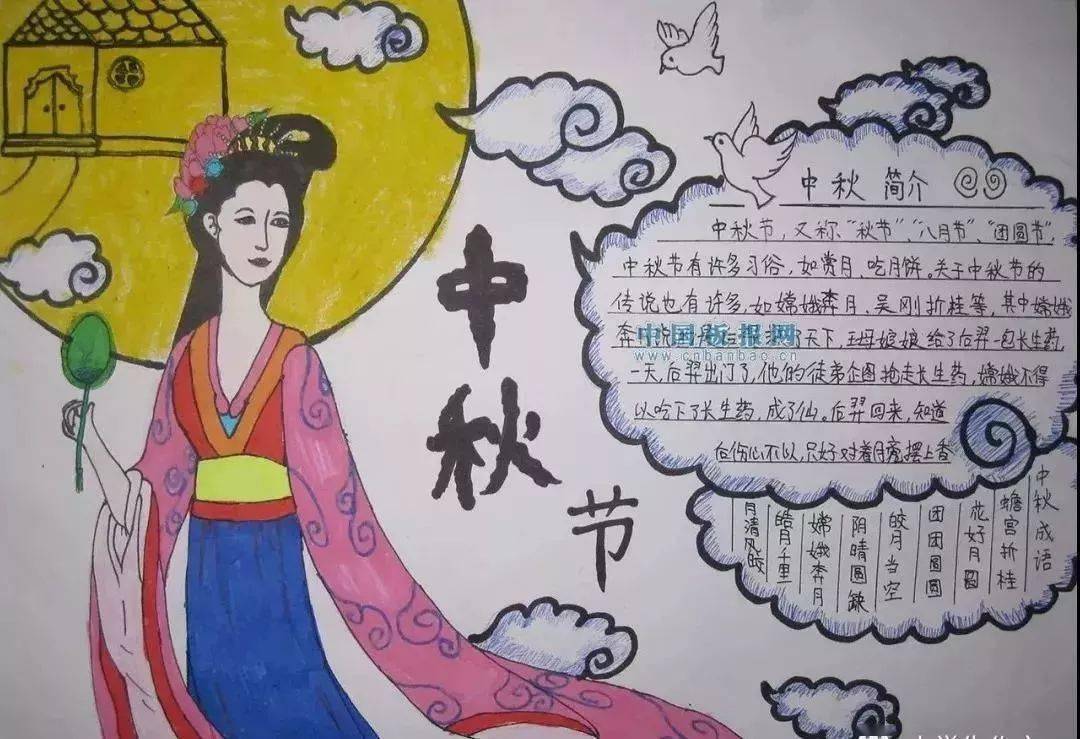 中秋节
中秋 简介
中秋节，又称“秋节”、“八月节”、“团圆节”，
中秋节有许多习俗，如赏月、吃月饼。关于中秋节的
传说也有许多，如嫦娥奔月、吴刚折桂等，其中嫦娥
奔月 了天下，王母娘娘给了后羿一包长生药
一天，后羿出门了，他的徒弟企图抢走长生药，嫦娥不得
以吃下了长生药，成了仙。后羿回来，知道
后伤心不以，只好对着月亮摆上香
中国板报网
www.cnbanbao.cn
中秋成语
蟾宫折桂
花好月圆
团团圆圆
皎月当空
阴晴圆缺
嫦娥奔月
皓月千里
月清风皎